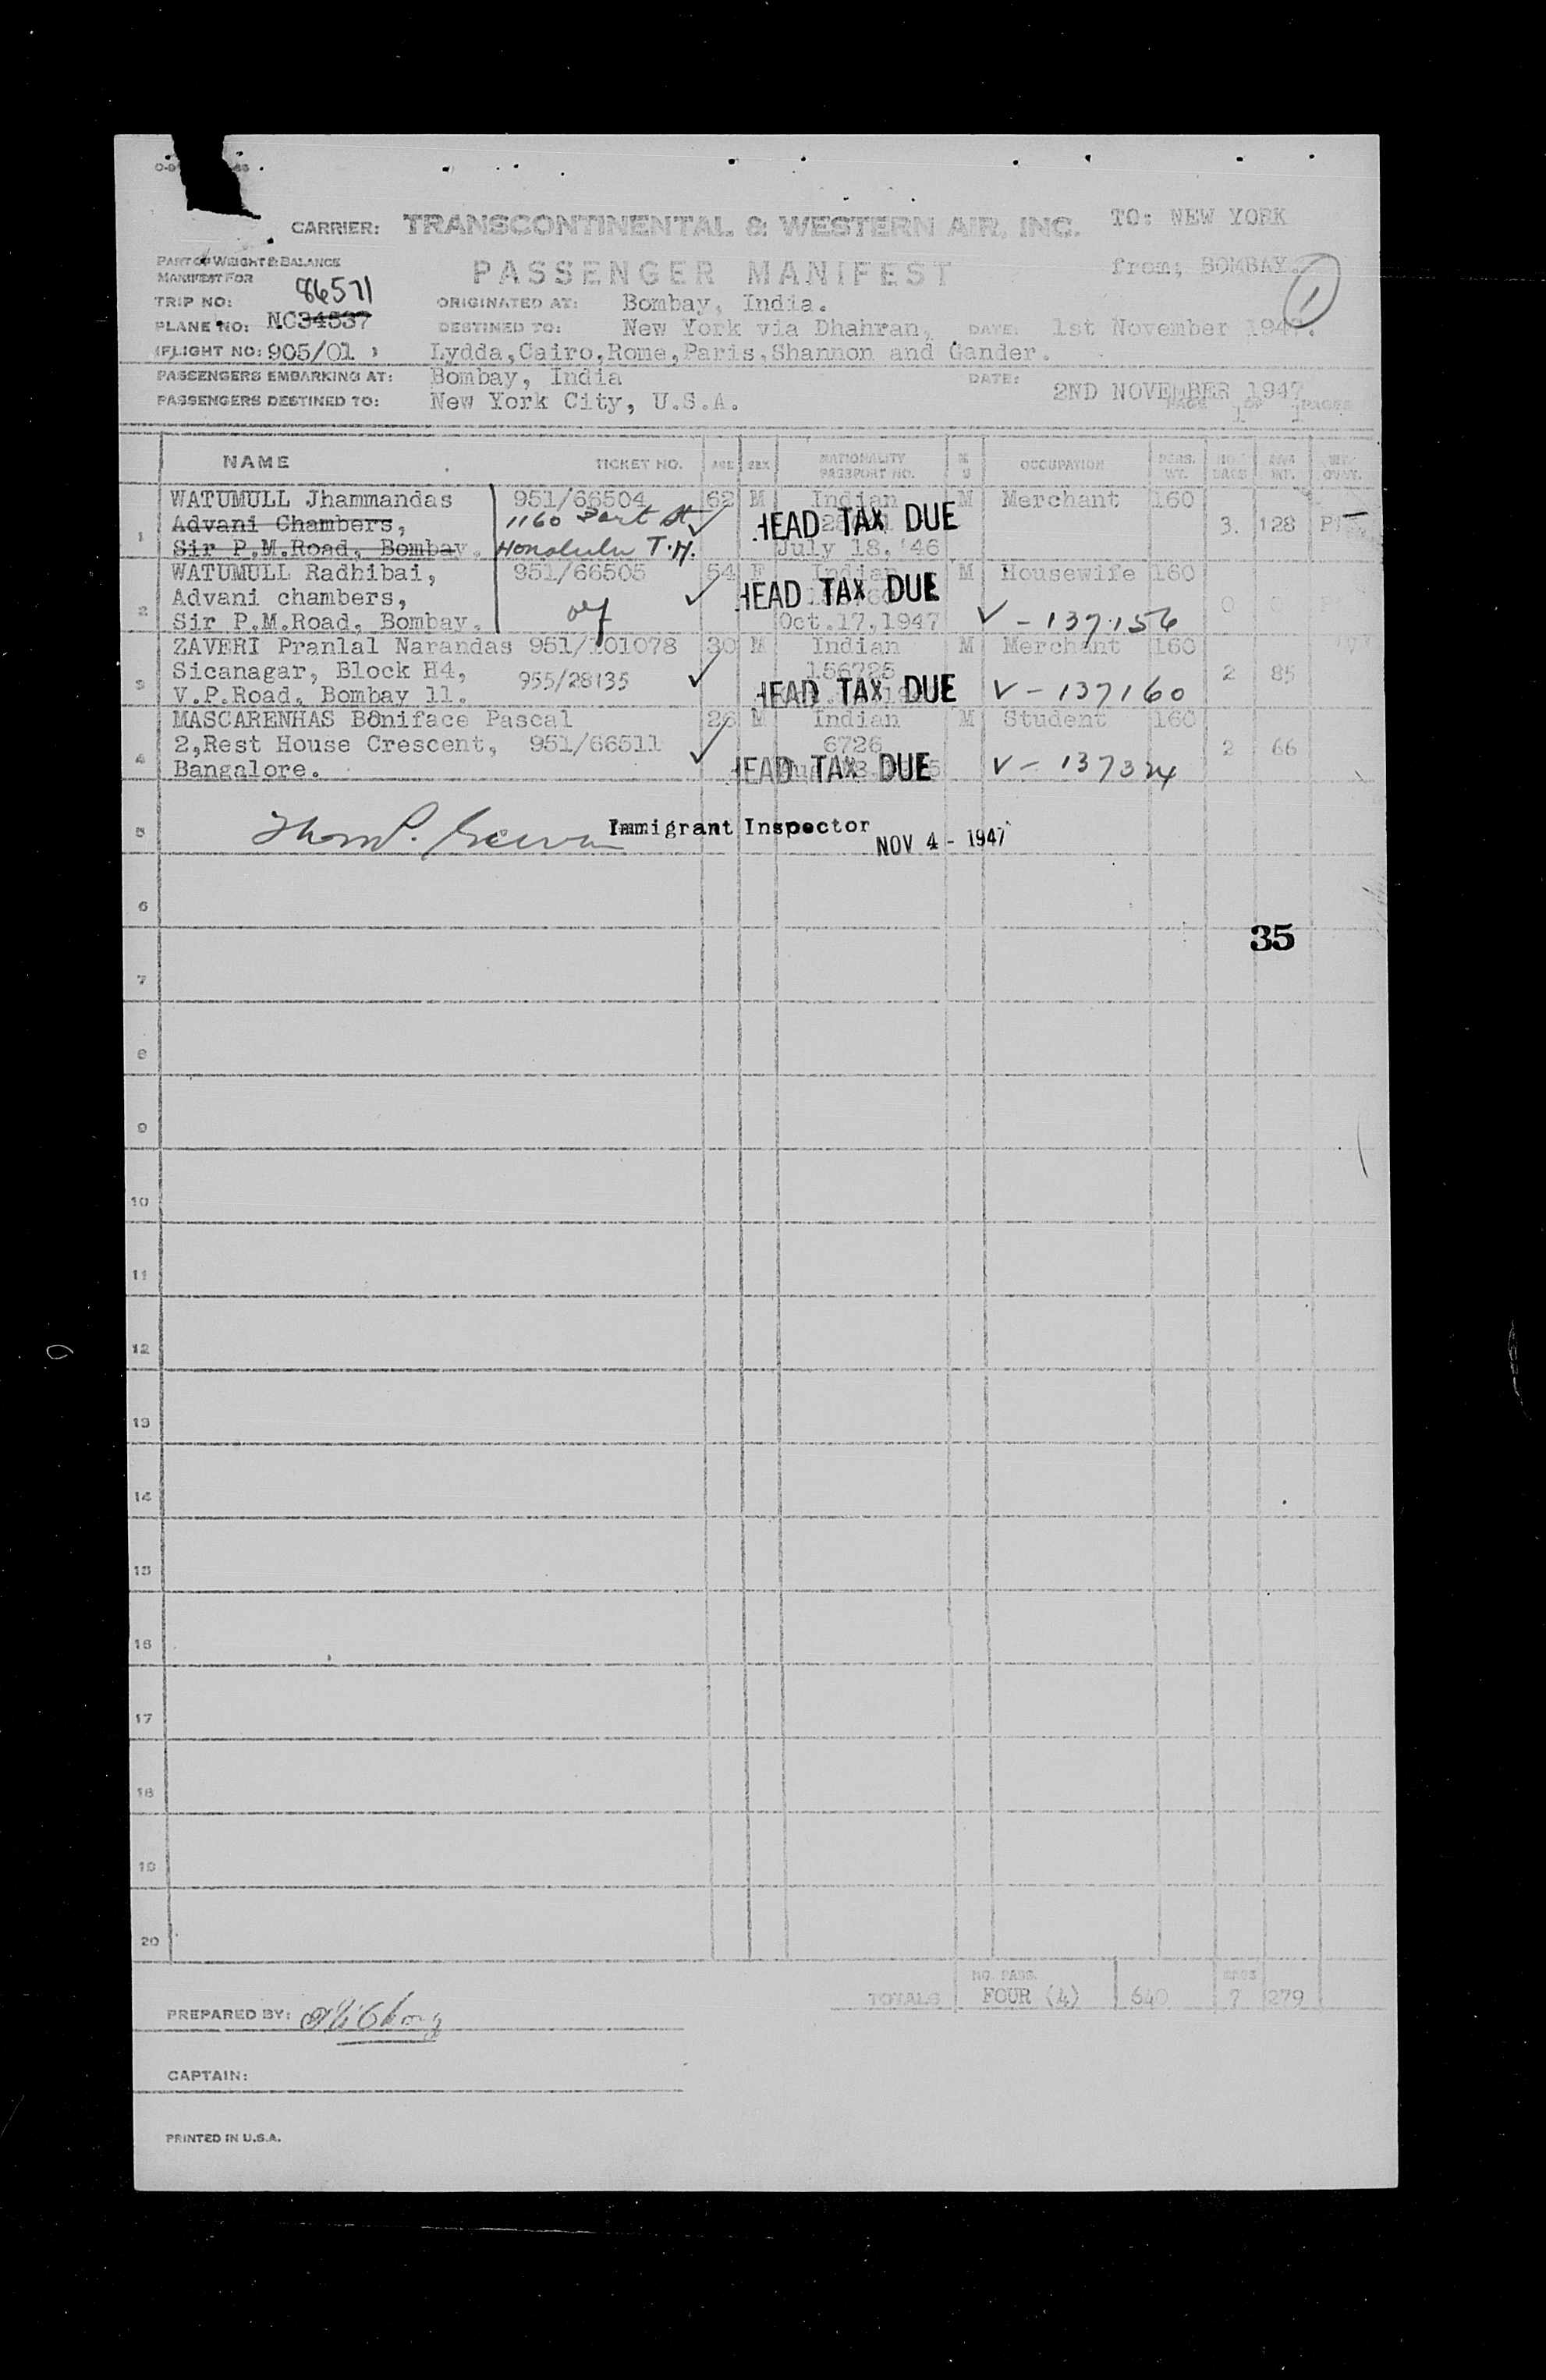 CARRIER: TRANSCONTINENTAL & WESTERN AIR, INC. TO: NEW YORK
PASSENGER MANIFEST from; BOMBAY. 1
PART OF WEIGHT & BALANCE
MANIFEST FOR
TRIP NO: 86571
PLANE NO: NC34537
(FLIGHT NO: 905/01 )
ORIGINATED AT: Bombay, India.
DESTINED TO: New York via Dhahran, DATE: 1st November 1947.
Lydda,Cairo,Rome,Paris,Shannon and Gander.
PASSENGERS EMBARKING AT: Bombay, India DATE: 2ND NOVEMBER 1947
PASSENGERS DESTINED TO: New York City, U.S.A. PAGE 1 OF 1 PAGES
NAME TICKET NO. AGE SEX NATIONALITY PASSPORT NO. M S OCCUPATION PERS. WT. NO. BAGS BAG WT.
WATUMULL Jhammandas 951/66504 62 M Indian M Merchant 160
1 Advani Chambers, 1160 HEAD TAX DUE 3. 128
Sir P.M.Road, Bombay. Honolulu T.H. July 18, '46
WATUMULL Radhibai, 951/66505 54 F Indian M Housewife 160
Advani chambers, HEAD TAX DUE
2 Sir P.M.Road, Bombay. Oct.17,1947 V - 137156
ZAVERI Pranlal Narandas 951/101078 30 M Indian M Merchant 160
Sicanagar, Block H4, 955/28135 156725 2 85
3 V.P.Road, Bombay 11. HEAD TAX DUE V - 137160
MASCARENHAS Boniface Pascal 26 M Indian M Student 160
2,Rest House Crescent, 951/66511 6726 2 66
4 Bangalore. HEAD TAX DUE V - 137324
5 Immigrant Inspector NOV 4 - 1947
6
35
7
8
9
10
11
12
13
14
15
16
17
18
19
20
NO. PASS. BAGS
TOTALS FOUR (4) 640 7 279
PREPARED BY:
CAPTAIN:
PRINTED IN U.S.A.